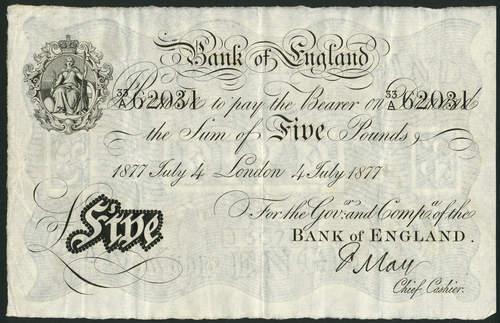 Bank of England
33/A 62031 to pay the Bearer on 33/A 62031
the Sum of Five Pounds
1877 July 4 London 4 July 1877
For the Gov.r and Comp.a of the
BANK OF ENGLAND.
£Five
F May
Chief Cashier.